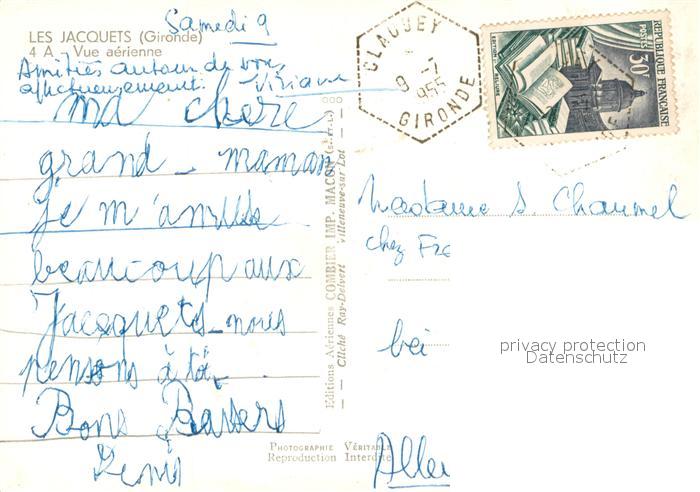 LES JACQUETS (Gironde)
4 A - Vue aérienne
Samedi 9
Amitiés autour de vous
affectueusement. Viviane
ma chere
grand-maman
je m'amuse
beaucoup aux
Jacquets-nous
pensons à toi
Bons Baisers
Denis
Editions Aériennes COMBIER IMP. MACON
Cliché Ray-Delvert Villeneuve-sur-Lot
PHOTOGRAPHIE VÉRITABLE
Reproduction Interdite
CLAOUEY
9 -7
1955
GIRONDE
30F
POSTES
REPUBLIQUE FRANÇAISE
Madame S. Chaumel
chez Fre
bei
Alle
privacy protection
Datenschutz